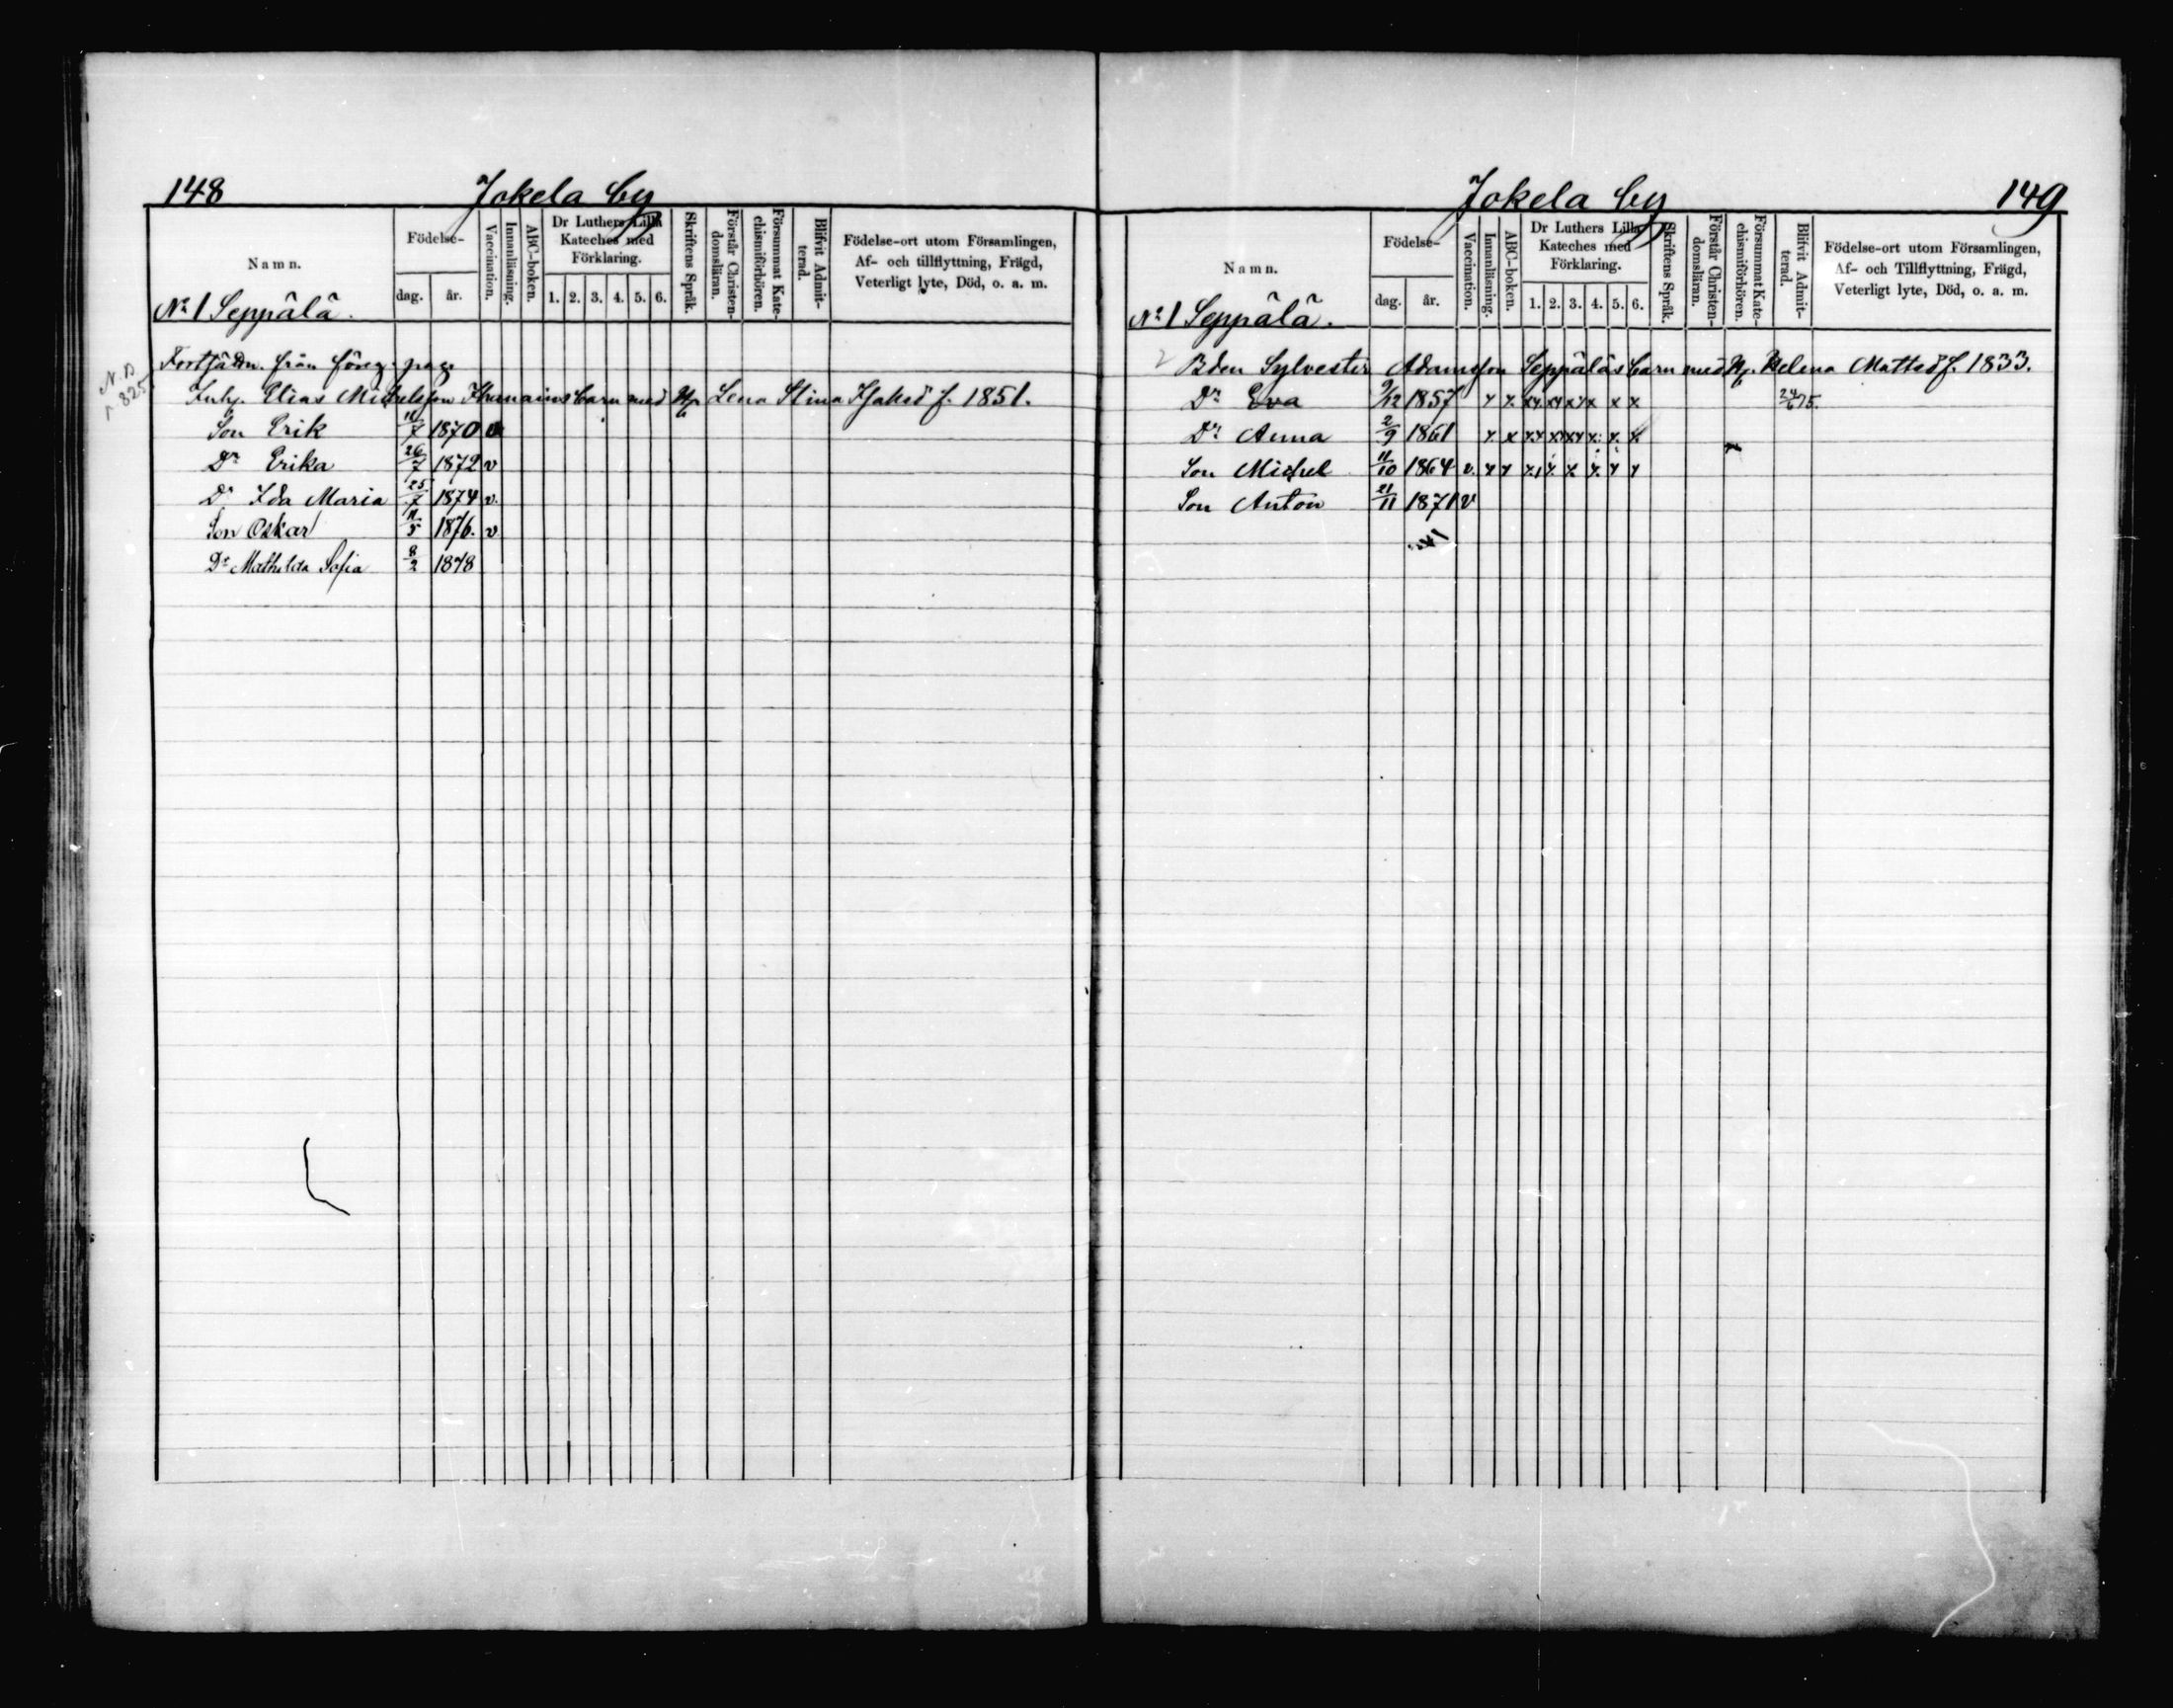 148 Jokela by
Namn. Födelse- Vaccination. Innanläsning. ABC-boken. Dr Luthers Lilla Kateches med Förklaring. Skriftens Språk. Förstår Christendomsläran. Försummat Katechismiförhören. Blifvit Admitterad. Födelse-ort utom Församlingen, Af- och tillflyttning, Frägd, Veterligt lyte, Död, o. a. m.
dag. år. 1. 2. 3. 4. 5. 6.
No 1 Seppälä.
Fortsättn. från föreg. pag.
N. B
p 825
Inh. Elias Michelsson barn med H. Lena Stina Isaksd f. 1851.
Son Erik 11/7 1870 v
Dr Erika 26/7 1872 v
Dr Ida Maria 25/7 1874 v.
Son Oskar 11/5 1876. v
Dr Mathilda Sofia 8/2 1878
Jokela by 149
Namn. Födelse- Vaccination. Innanläsning. ABC-boken. Dr Luthers Lilla Kateches med Förklaring. Skriftens Språk. Förstår Christendomsläran. Försummat Katechismiförhören. Blifvit Admitterad. Födelse-ort utom Församlingen, Af- och Tillflyttning, Frägd, Veterligt lyte, Död, o. a. m.
dag. år. 1. 2. 3. 4. 5. 6.
No 1 Seppälä.
Bden Sylvester Adamsson Seppäläs barn med H. Helena Mattsd f. 1833.
Dr Eva 9/12 1857 x x xx xx xx x x x 24/6 75.
Dr Anna 2/9 1861 x x xx xx xx x x x
Son Michel 11/10 1864 v. x x xx x x x x x
Son Anton 21/11 1871 v